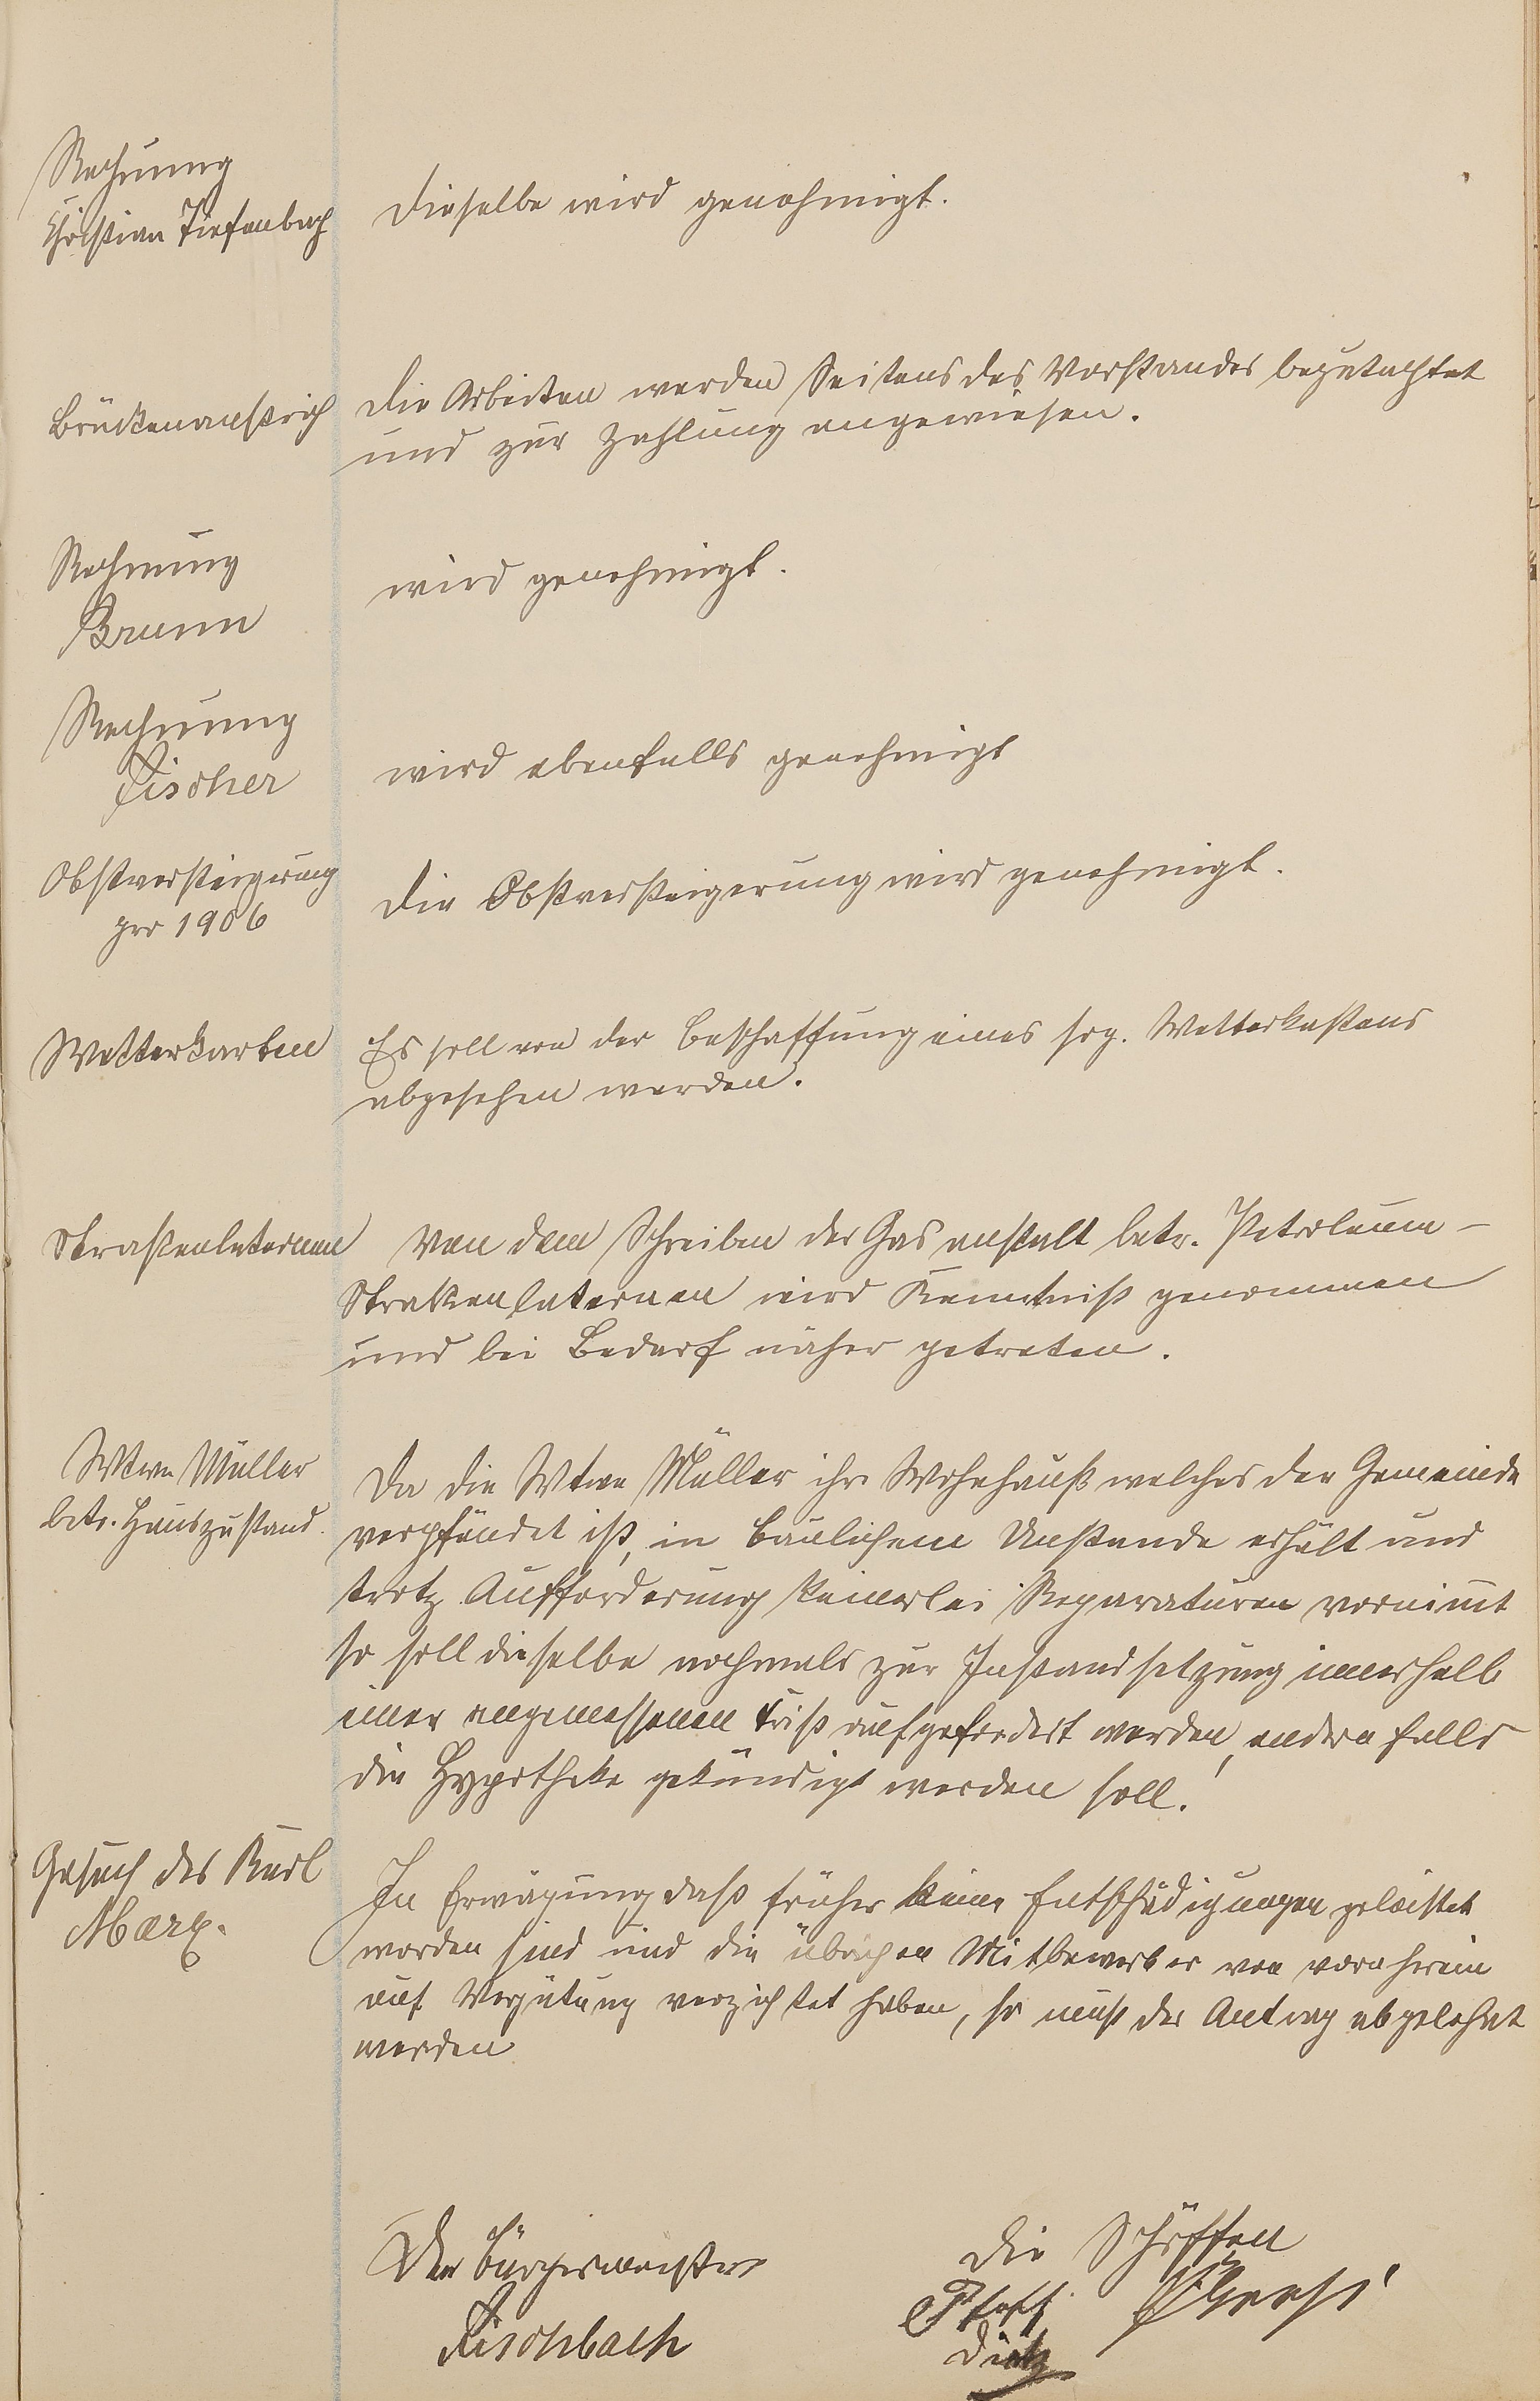 Rechnung
Christian Tiefenbach
Dieselbe wird genehmigt.
Brückenanstrich
Die Arbeiten werden Seitens des Vorstandes begutachtet
und zur Zahlung angewiesen.
Rechnung
Brumm
wird genehmigt.
Rechnung
Fischer
wird ebenfalls genehmigt
Obstversteigerung
pro 1906
Die Obstversteigerung wird genehmigt.
Wetterkarten
Es soll von der Beschaffung eines sog. Wetterkastens
abgesehen werden.
Straßenlaternen
Von dem Schreiben der Gasanstalt betr. Petroleum-
Straßenlaternen wird Kenntniß genommen
und bei Bedarf näher getreten.
Wtwe Müller
betr. Hauszustand.
Da die Wtwe Müller ihr Wohnhauß welches der Gemeinde
verpfändet ist, in baulichem Unstande erhält und
trotz Aufforderung keinerlei Reparaturen vornimmt
so soll dieselbe nochmals zur Instandsetzung innerhalb
einer angemessenen Frist aufgefordert werden, andern falls
die Hypotheke gekündigt werden soll!
Gesuch des Karl
Marx.
In Erwägung daß früher keine Entschädigungen geleistet
worden sind und die übrigen Mitbewerber von vornherein
auf Vergütung verzichtet haben, so muß der Antrag abgelehnt
werden
Der Bürgermeister
Fischbach
Die Schöffen
Pfaff
Dietz